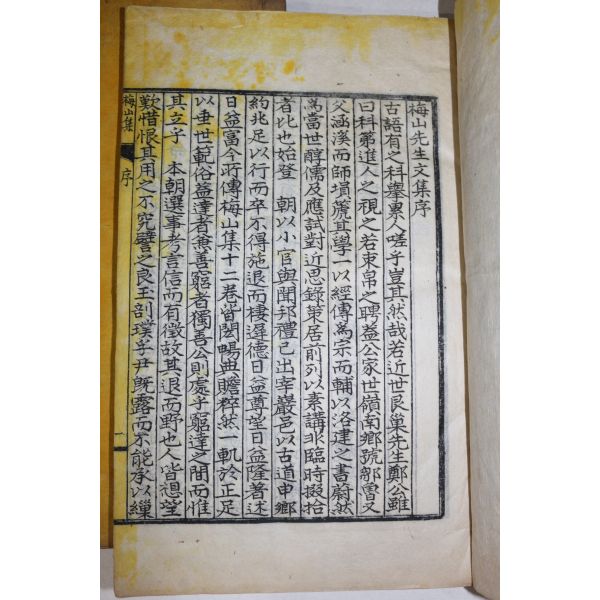 梅山先生文集序
古語有之科擧累人嗟乎豈其然哉若近世艮巢先生鄭公雖
曰科第進人之視之若束帛之聘益公家世嶺南鄕號鄒魯又
父涵溪而師塤篪其學一以經傳爲宗而輔以洛建之書蔚然
爲當世醇儒及應試對近思錄策居前列以素講非臨時掇拾
者比也始登 朝以小官與聞邦禮已出宰巖邑以古道申鄕
約兆足以行而卒不得施退而棲遲德日益尊望日益隆著述
日益富今所傳梅山集十二卷皆閎暢典贍粹然一軌於正足
以垂世範俗益達者兼善窮者獨善公則處乎窮達之間而惟
其立乎 本朝選事考言信而有徵故其退而野也人皆想望
歎惜恨其用之不究譬之良玉剖璞孚尹旣露而不能承以繅
梅山集 序 一